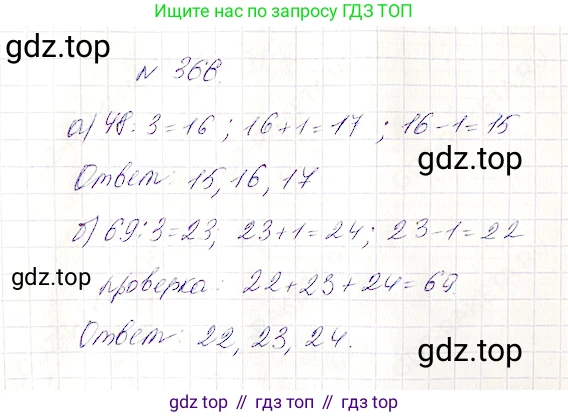 Ищите нас по запросу ГДЗ ТОП
gdz.top
№ 366.
а) 48:3=16 ; 16+1=17 ; 16-1=15
gdz.top
Ответ: 15, 16, 17
б) 69:3=23, 23+1=24; 23-1=22
gdz.top
проверка: 22+23+24=69
Ответ: 22, 23, 24.
gdz.top
gdz.top // гдз.топ // gdz.top // гдз.топ